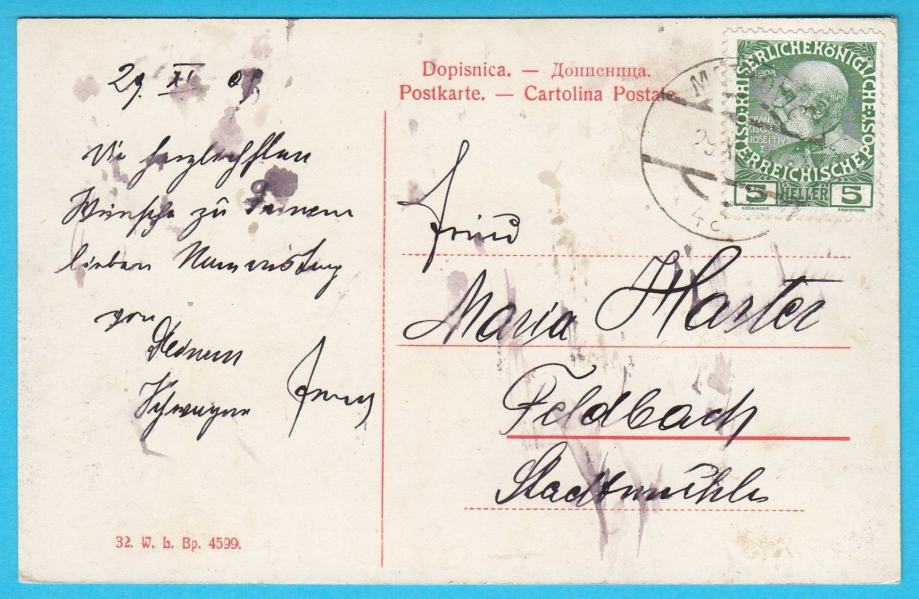 Dopisnica. — Дописница.
Postkarte. — Cartolina Postale.
29. XI 09
Die herzlichsten
Wünsche zu Deinem
lieben Namenstag
von
Deinem
Schwager Franz
KAISERLICHE KÖNIGLICHE
ÖSTERREICHISCHE
POST
1908
5 HELLER 5
29
Maria Harter
Feldbach
Stadtmühle
32. W. L. Bp. 4599.